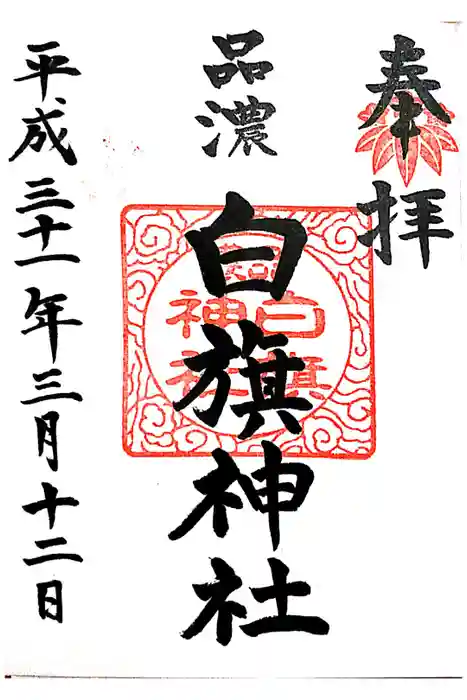 奉拝
品濃
白旗神社
平成三十一年三月十二日
品濃
白旗
神社